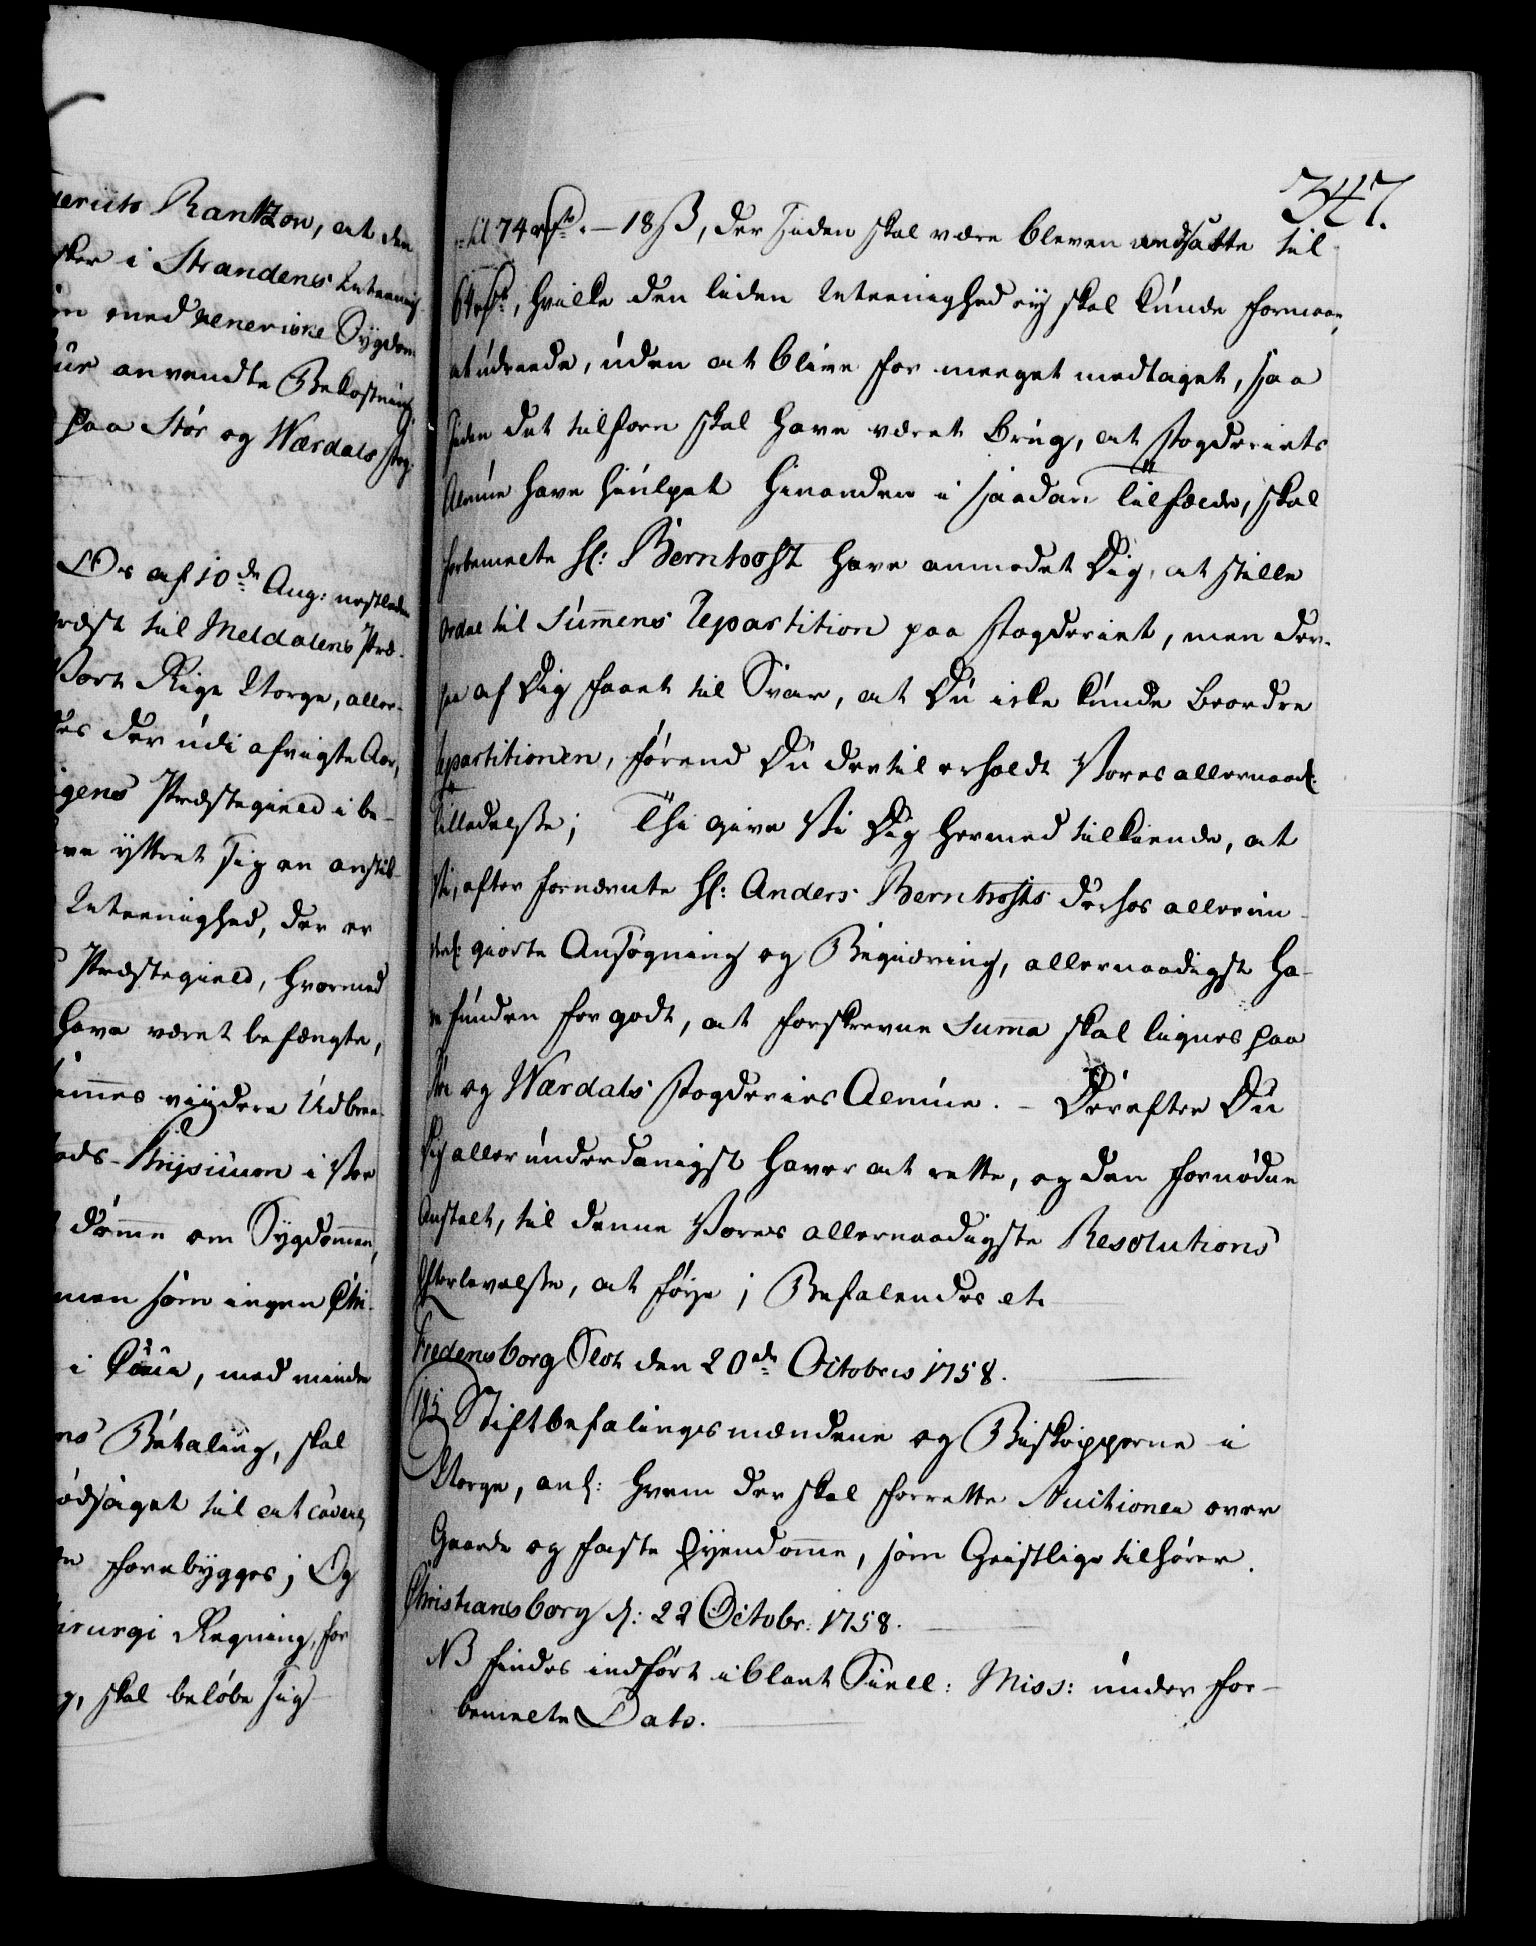 geruts Rantzow, at den
sker i Strandens Meenig-
en med veneriske Sygdom
Cur anvendte Bekostning,
paa Stör og Værdals fog-
Os af 10de Aug: nestleden
ræst til Meldalens Præ-
Vort Rige Norge, aller-
des der udi afvigte Aar,
gens Præstegield i be-
ve yttret sig en anstik-
Meenighed, der er
Præstegield, hvormed
have været befængte,
ammes viidere Udbree-
ads-Phijsicum i Vor
dømme om Sygdommen,
men som ingen Chi-
i Cuur, med mindre
ns Betaling, skal
ødsaget til at cavere,
forebygges; Og
irurgi Regning, for
g, skal beløbe sig
347.
=til 74 rdr. - 18 ß, der siden skal være bleven nedsatte til
64 rdr, hvilke den liden Meenighed eij skal kunde formaae,
at udreede, uden at blive for meeget medtaget, saa
siden det tilforn skal have været brug, at Fogderiets
Almue have hiulpet hinanden i saadan Tilfælde, skal
forbemelte Hr: Bernhoft have anmodet Dig, at stille
Ordre til Summens Repartition paa Fogderiet, men der-
paa af Dig faaet til Svar, at Du icke kunde beordre
Repartitionen, førend Du dertil erholdt Vores allernaad:
Tilladelse; Thi give Vi Dig hermed tilkiende, at
Vi, efter fornævnte Hr: Anders Bernhofts derhos allerun-
derd: giorte Ansøgning og Begiæring, allernaadigst ha-
ve funden for godt, at forskrevne Summa skal lignes paa
Stör og Værdals Fogderies Almue. - Derefter Du
Dig allerunderdanigst haver at rette, og den fornødne
Anstalt, til denne Vores allernaadigste Resolutions
Efterlevelse, at føije; Befalendes etc
Fredensborg Slot den 20de Octobris 1758.
185 Stiftbefalingsmændene og Biskopperne i
Norge, anl: hvem der skal forrette Auctioner over
Gaarde og faste Eijendomme, som Geistlige tilhører.
Christiansborg d: 22 Octobr: 1758.
NB findes indført iblant Siell: Miss: under for-
bemelte Dato.